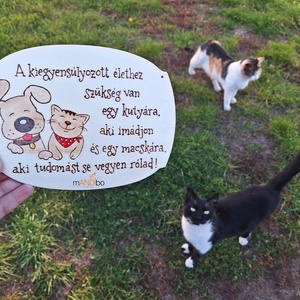 A kiegyensúlyozott élethez
szükség van
egy kutyára,
aki imádjon
és egy macskára,
aki tudomást se vegyen rólad!
mANóbo